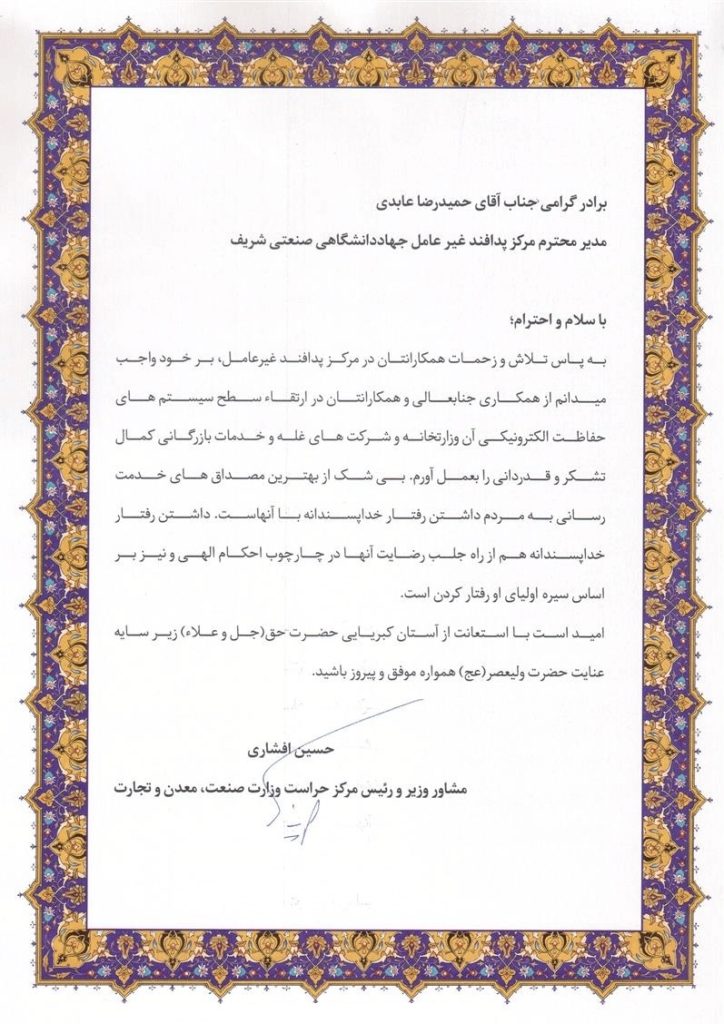 برادر گرامی جناب آقای حمیدرضا عابدی
مدیر محترم مرکز پدافند غیر عامل جهاددانشگاهی صنعتی شریف
با سلام و احترام؛
به پاس تلاش و زحمات همکارانتان در مرکز پدافند غیرعامل، بر خود واجب
میدانم از همکاری جنابعالی و همکارانتان در ارتقاء سطح سیستم های
حفاظت الکترونیکی آن وزارتخانه و شرکت های غله و خدمات بازرگانی کمال
تشکر و قدردانی را بعمل آورم. بی شک از بهترین مصداق های خدمت
رسانی به مردم داشتن رفتار خداپسندانه با آنهاست. داشتن رفتار
خداپسندانه هم از راه جلب رضایت آنها در چارچوب احکام الهی و نیز بر
اساس سیره اولیای او رفتار کردن است.
امید است با استعانت از آستان کبریایی حضرت حق(جل و علاء) زیر سایه
عنایت حضرت ولیعصر(عج) همواره موفق و پیروز باشید.
حسین افشاری
مشاور وزیر و رئیس مرکز حراست وزارت صنعت، معدن و تجارت